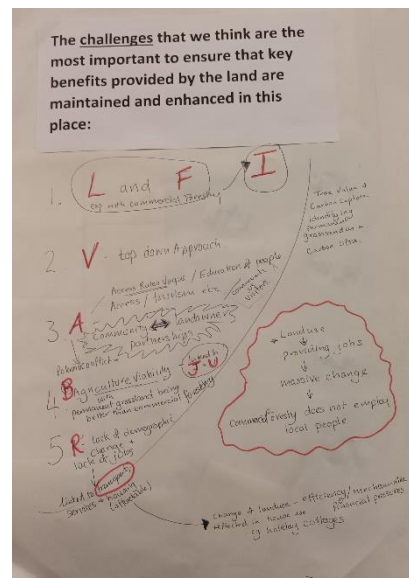 The challenges that we think are the
most important to ensure that key
benefits provided by the land are
maintained and enhanced in this
place:
1. L and F I
eg with commercial Forestry
True Value of
Carbon
identifying
permanent
grassland as a
Carbon
2 V - top down Approach
Access Rules Vague / Education of people
Access /
3 A Community ↔ landowners
partnerships
community
visitors
Potential conflict
4 B Agriculture Viability
linked to
J + U
with
permanent grassland being
better than commercial forestry
5 R: lack of demographic
change +
lack of jobs
Linked to transport,
services + housing
(affordable)
* Landuse
providing jobs
massive change
Commercial forestry does not employ
local people
Change of landuse - efficiency/
financial pressures
reflected in house use
eg holiday cottages